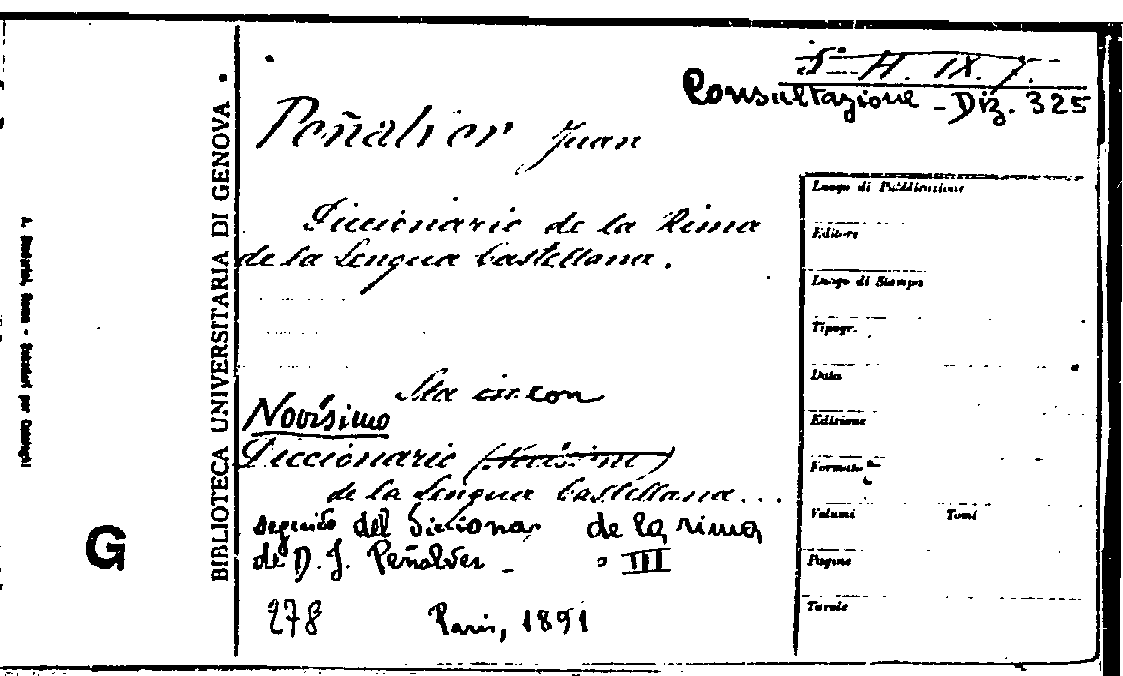 S. H. IX. 7.
Consultazione - Diz. 325
Peñalver Juan
Diccionario de la Rima
de la Lengua Castellana.
Sta in: con
Novísimo
Diccionario (Novísimo)
de la Lengua Castellana...
seguido del Diccionar de la rima
de D. J. Peñalver - III
278 Paris, 1891
BIBLIOTECA UNIVERSITARIA DI GENOVA
G
Luogo di Pubblicazione
Editore
Luogo di Stampa
Tipogr.
Data
Edizione
Formato
Volumi Tomi
Pagine
Tavole